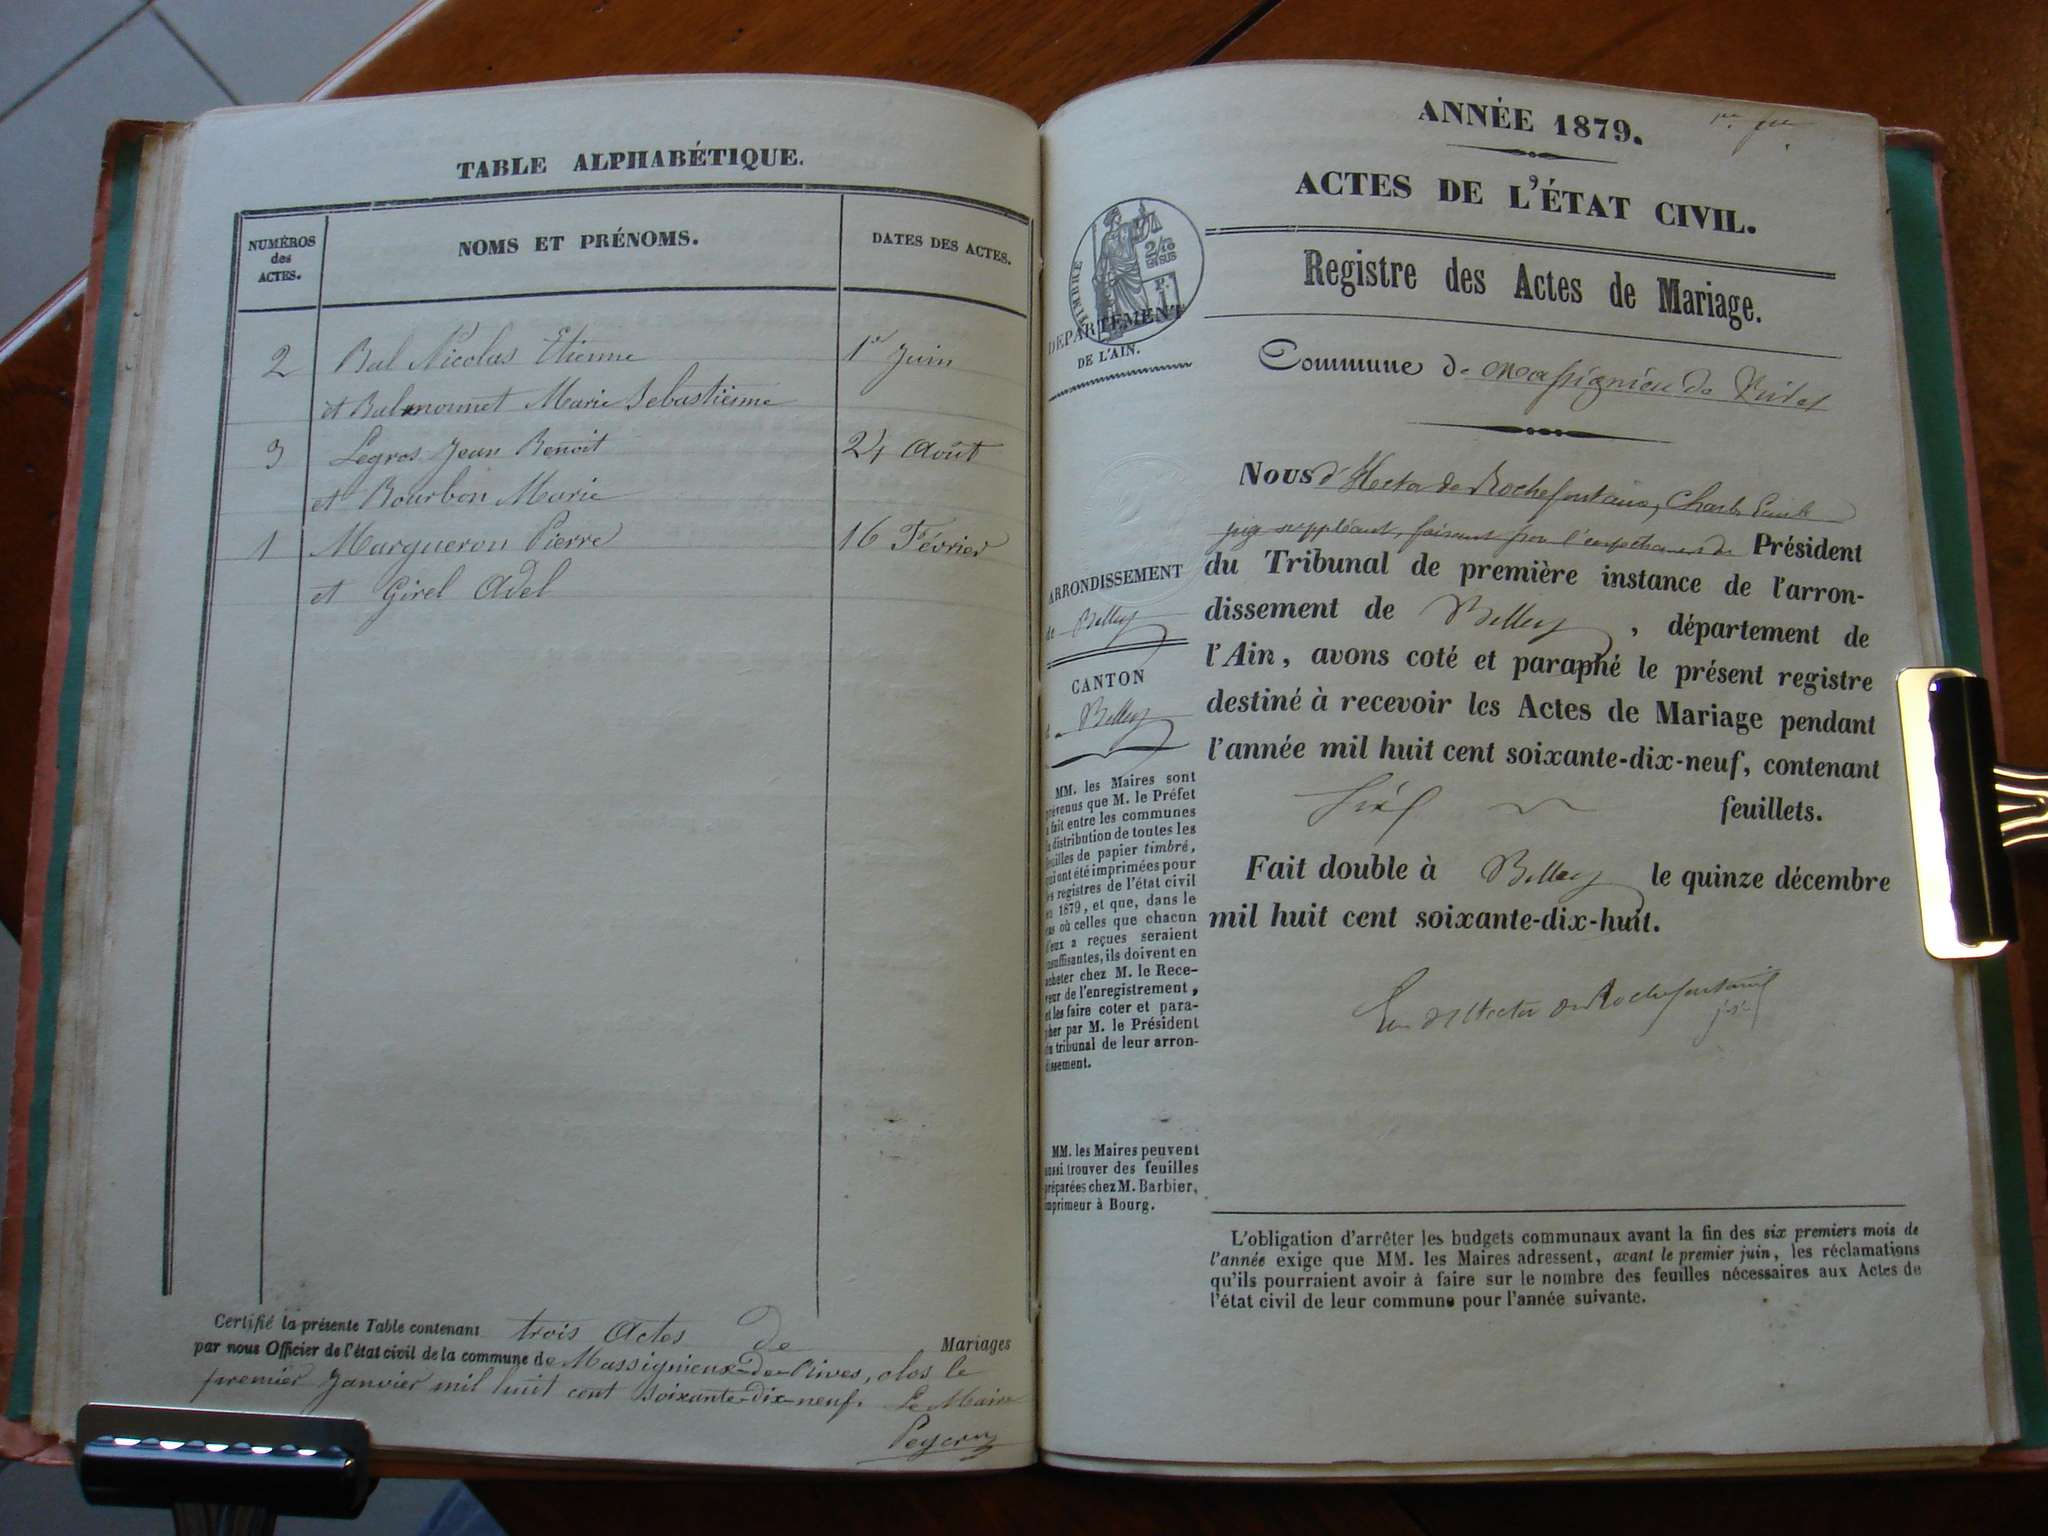 TABLE ALPHABÉTIQUE.
NUMÉROS
des
ACTES.
NOMS ET PRÉNOMS.
DATES DES ACTES.
2 Bal Nicolas Etienne 1er Juin
et Balmonnet Marie Sebastienne
3 Legros Jean Benoit 24 Août
et Bourbon Marie
1 Margueron Pierre 16 Février
et Girel Adel
Certifié la présente Table contenant trois Actes de Mariages
par nous Officier de l'état civil de la commune de Massignieux-de-Rives, clos le
premier Janvier mil huit cent soixante-dix-neuf. Le Maire
ANNÉE 1879.
ACTES DE L'ÉTAT CIVIL.
TIMBRE
2/10
EN SUS
DÉPARTEMENT
DE L'AIN.
Registre des Actes de Mariage.
Commune de Massignieu de Rives
ARRONDISSEMENT
de Belley
CANTON
Belley
MM. les Maires sont
prévenus que M. le Préfet
a fait entre les communes
la distribution de toutes les
feuilles de papier timbré,
qui ont été imprimées pour
les registres de l'état civil
en 1879, et que, dans le
cas où celles que chacun
d'eux a reçues seraient
insuffisantes, ils doivent en
acheter chez M. le Rece-
veur de l'enregistrement,
et les faire coter et para-
pher par M. le Président
du tribunal de leur arron-
dissement.
MM. les Maires peuvent
aussi trouver des feuilles
préparées chez M. Barbier,
imprimeur à Bourg.
Nous d'Hector de Rochefontaine, Charles Emile
juge suppléant, faisant pour l'empechement du Président
du Tribunal de première instance de l'arron-
dissement de Belley, département de
l'Ain, avons coté et paraphé le présent registre
destiné à recevoir les Actes de Mariage pendant
l'année mil huit cent soixante-dix-neuf, contenant
six feuillets.
Fait double à Belley le quinze décembre
mil huit cent soixante-dix-huit.
d'Hector de Rochefontaine
L'obligation d'arrêter les budgets communaux avant la fin des six premiers mois de
l'année exige que MM. les Maires adressent, avant le premier juin, les réclamations
qu'ils pourraient avoir à faire sur le nombre des feuilles nécessaires aux Actes de
l'état civil de leur commune pour l'année suivante.